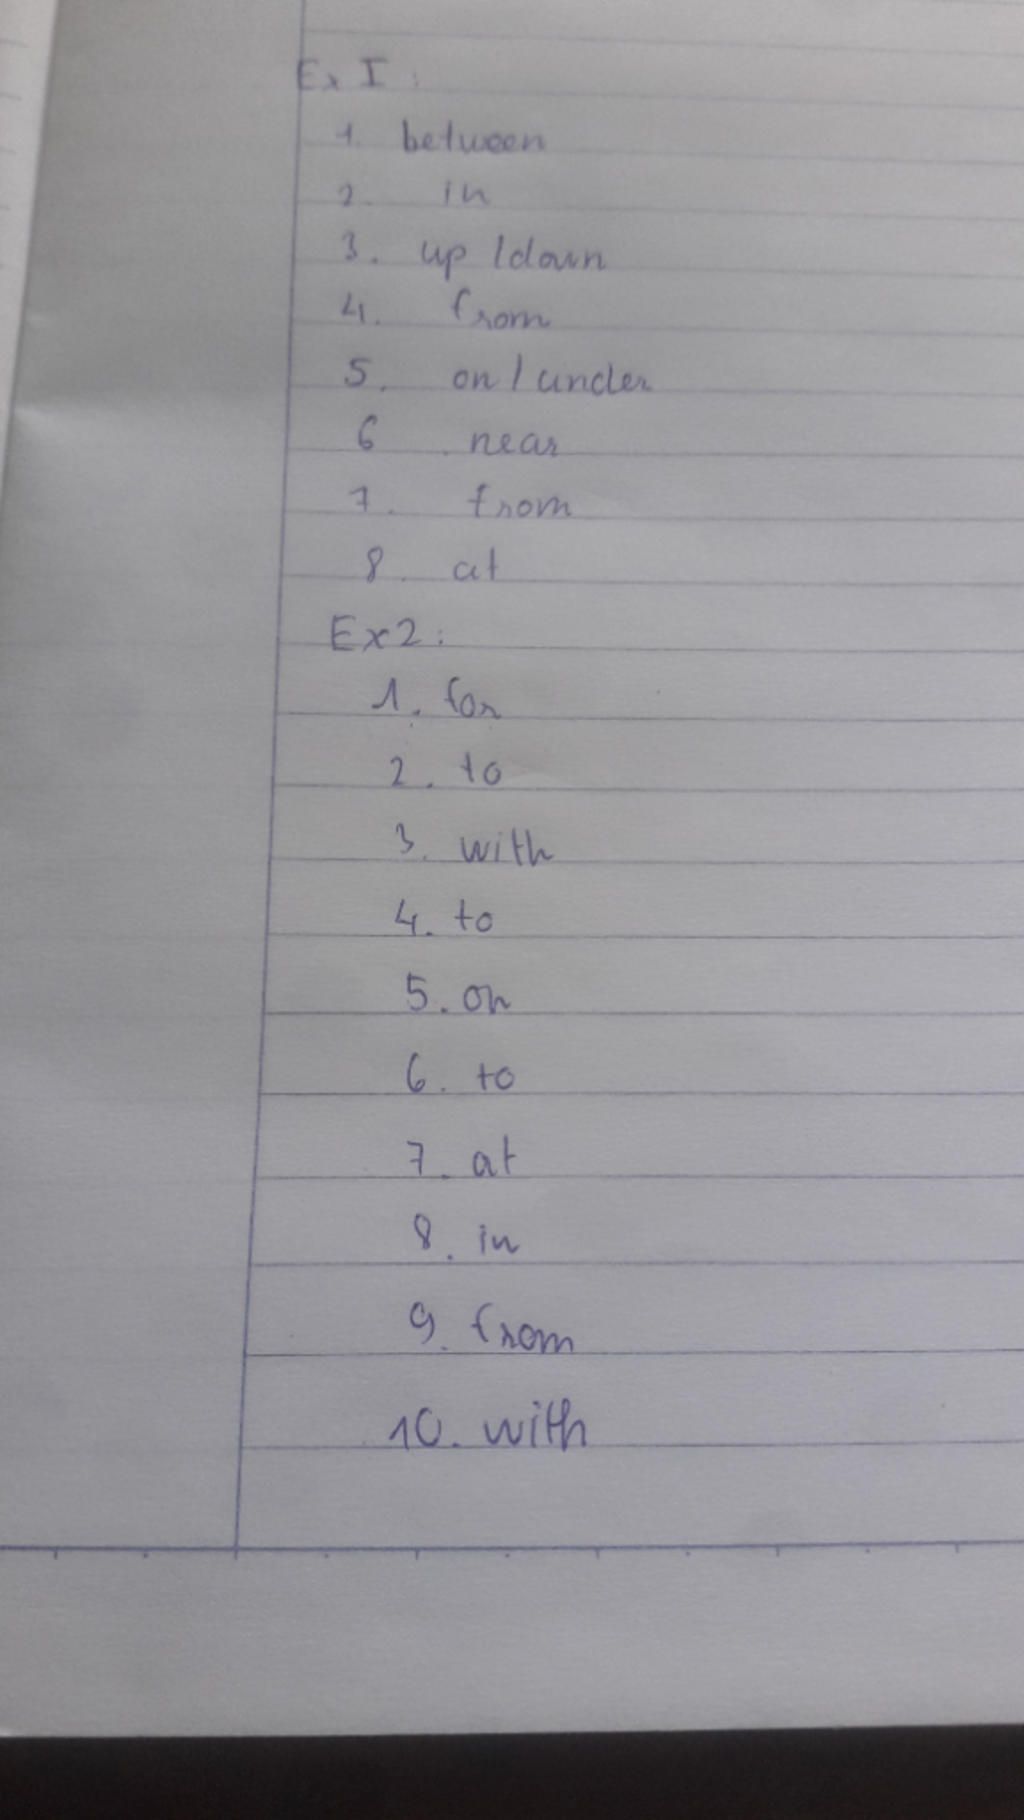 Ex I :
1. between
2. in
3. up / down
4. from
5. on / under
6. near
7. from
8. at
Ex 2 :
1. for
2. to
3. with
4. to
5. on
6. to
7. at
8. in
9. from
10. with